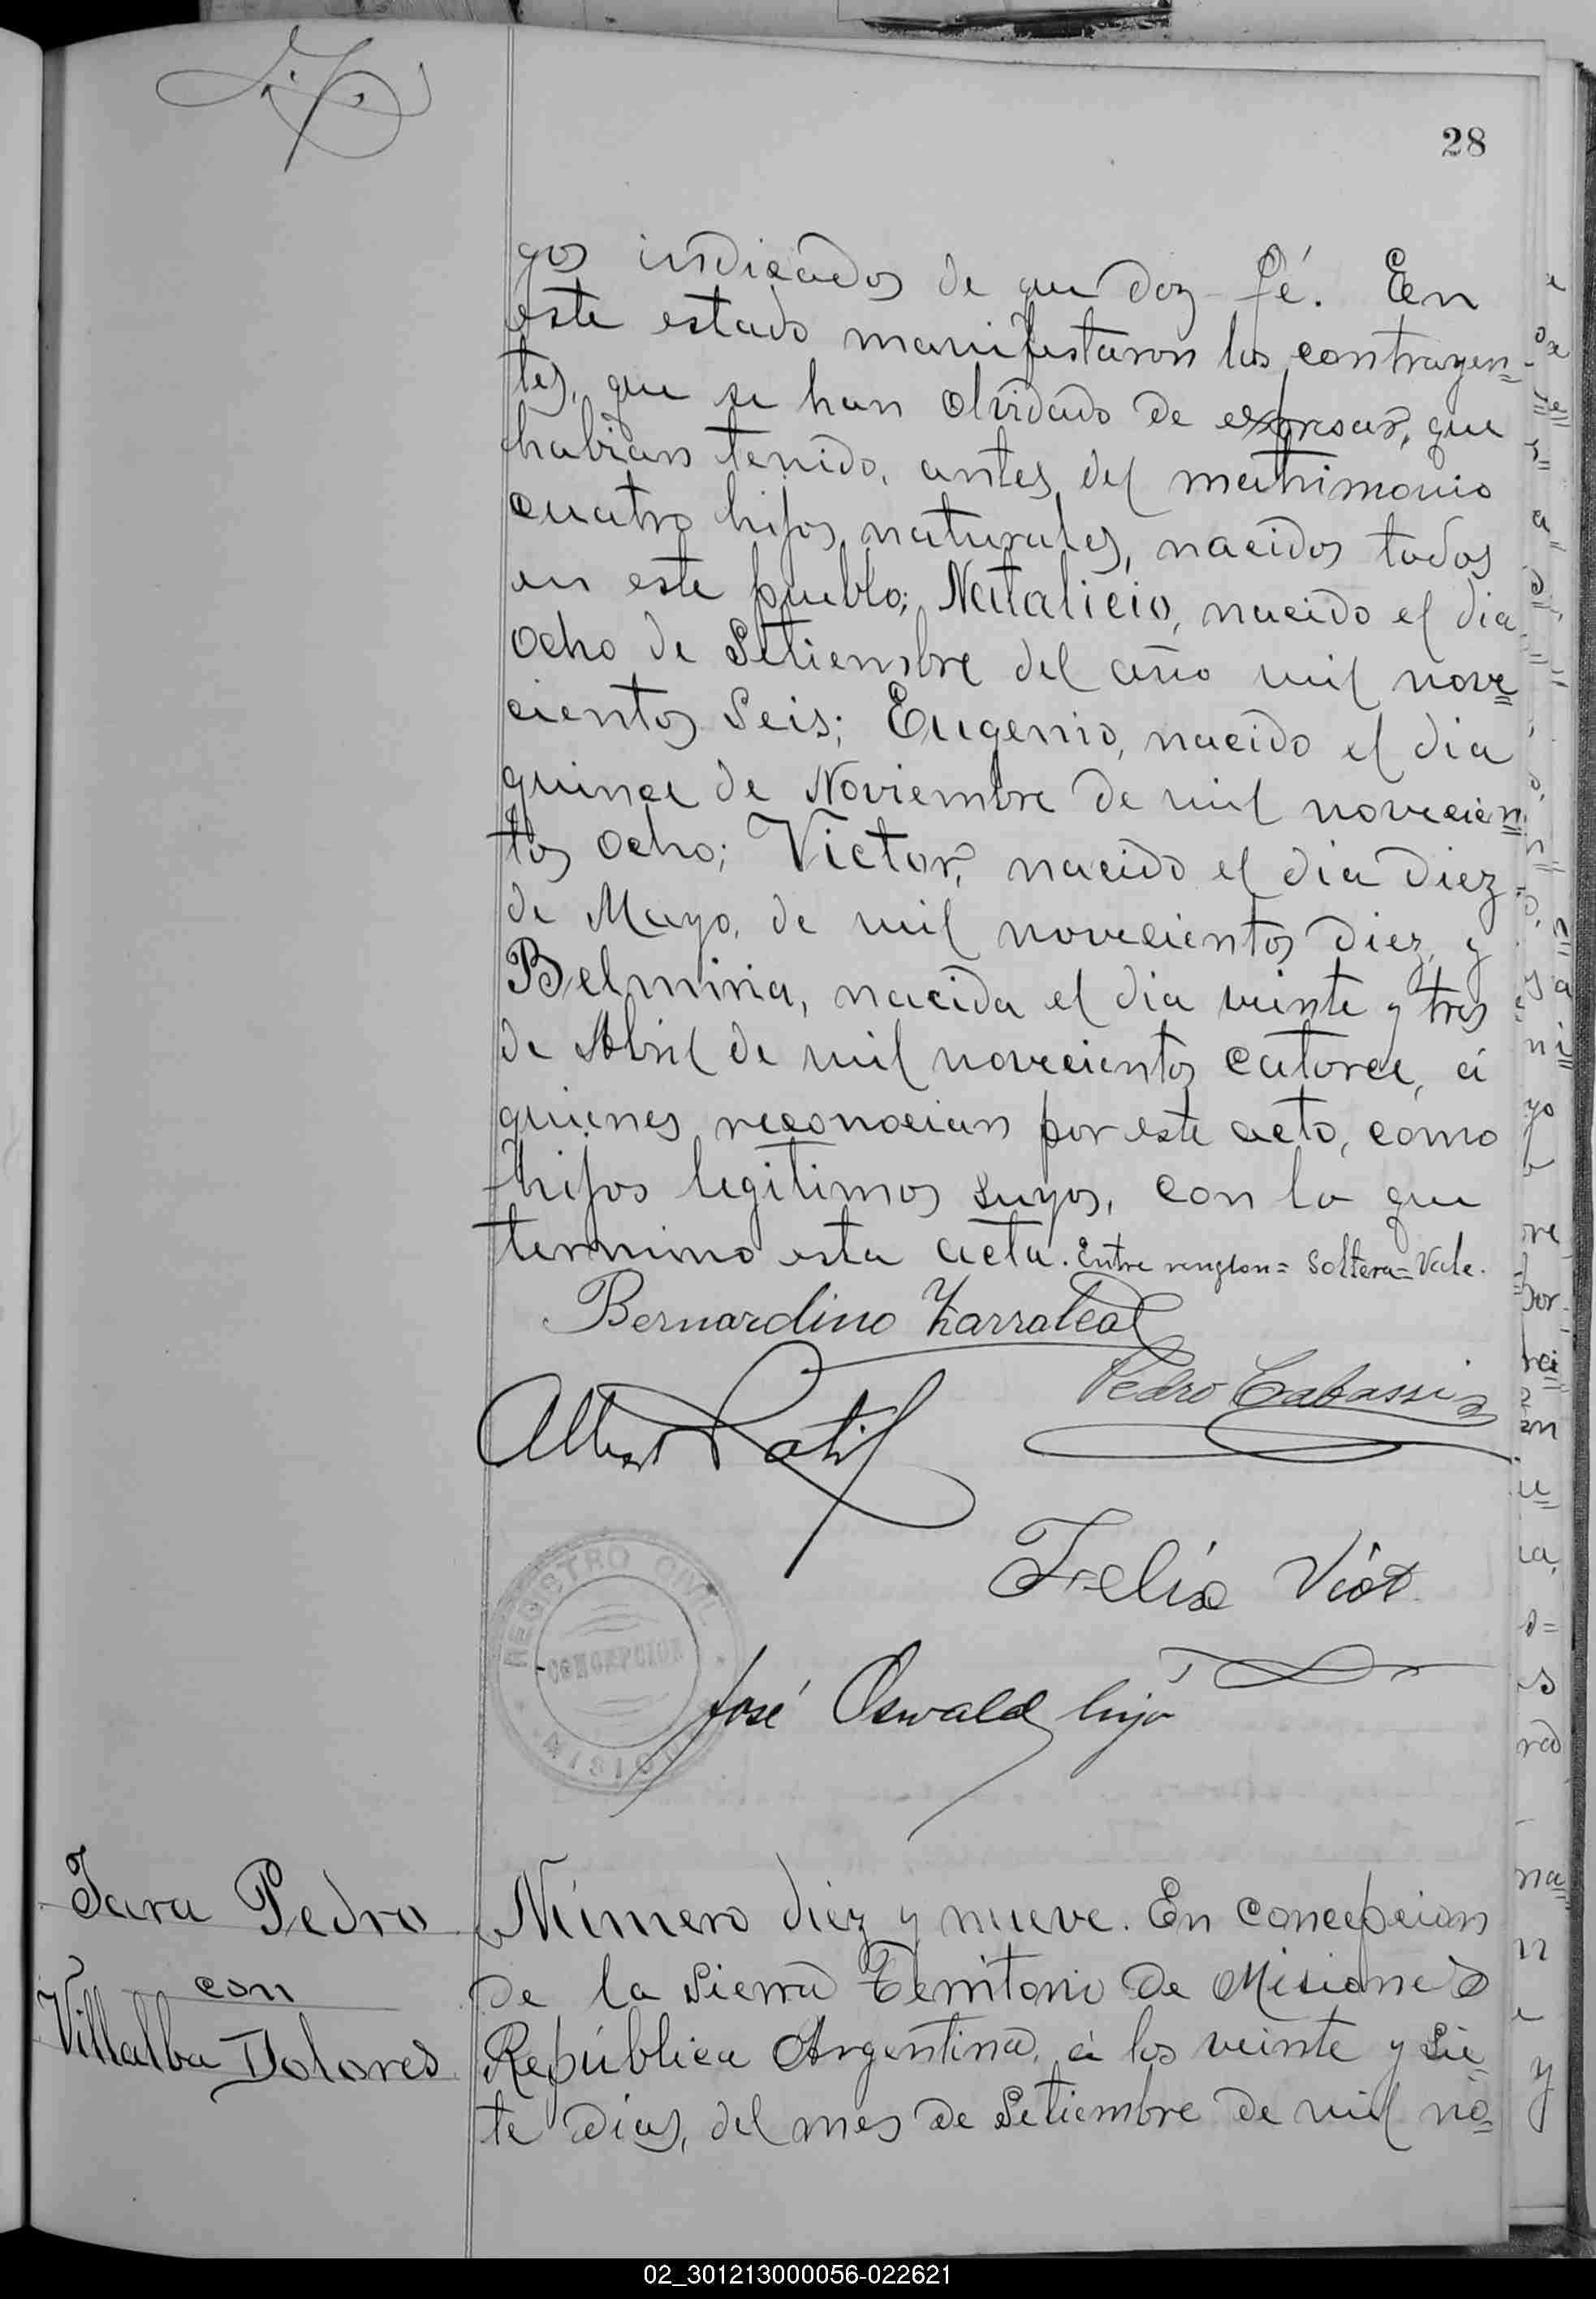 28
gos indicados de que doy fé. En
este estado manifestaron los contrayen=
tes, que se han olvidado de expresar, que
habian tenido, antes del matrimonio
cuatro hijos naturales, nacidos todos
en este pueblo; Natalicio, nacido el dia
ocho de Setiembre del año mil nove=
cientos seis; Eugenio, nacido el dia
quince de Noviembre de mil novecien=
tos ocho; Victor, nacido el dia diez
de Mayo, de mil novecientos diez, y
Belmiria, nacida el dia veinte y tres
de Abril de mil novecientos catorce, á
quienes reconocian por este acto, como
hijos legitimos suyos, con lo que
termino esta acta. Entre renglon= soltera= Vale.
Bernardino
Pedro
Felix Viot
REGISTRO CIVIL
CONCEPCION
José Oswald hijo
Jara Pedro
con
Villalba Dolores
Número diez y nueve. En Concepcion
de la Sierra Territorio de Misiones
República Argentina, á los veinte y sie=
te dias, del mes de Setiembre de mil no=
02_301213000056-022621